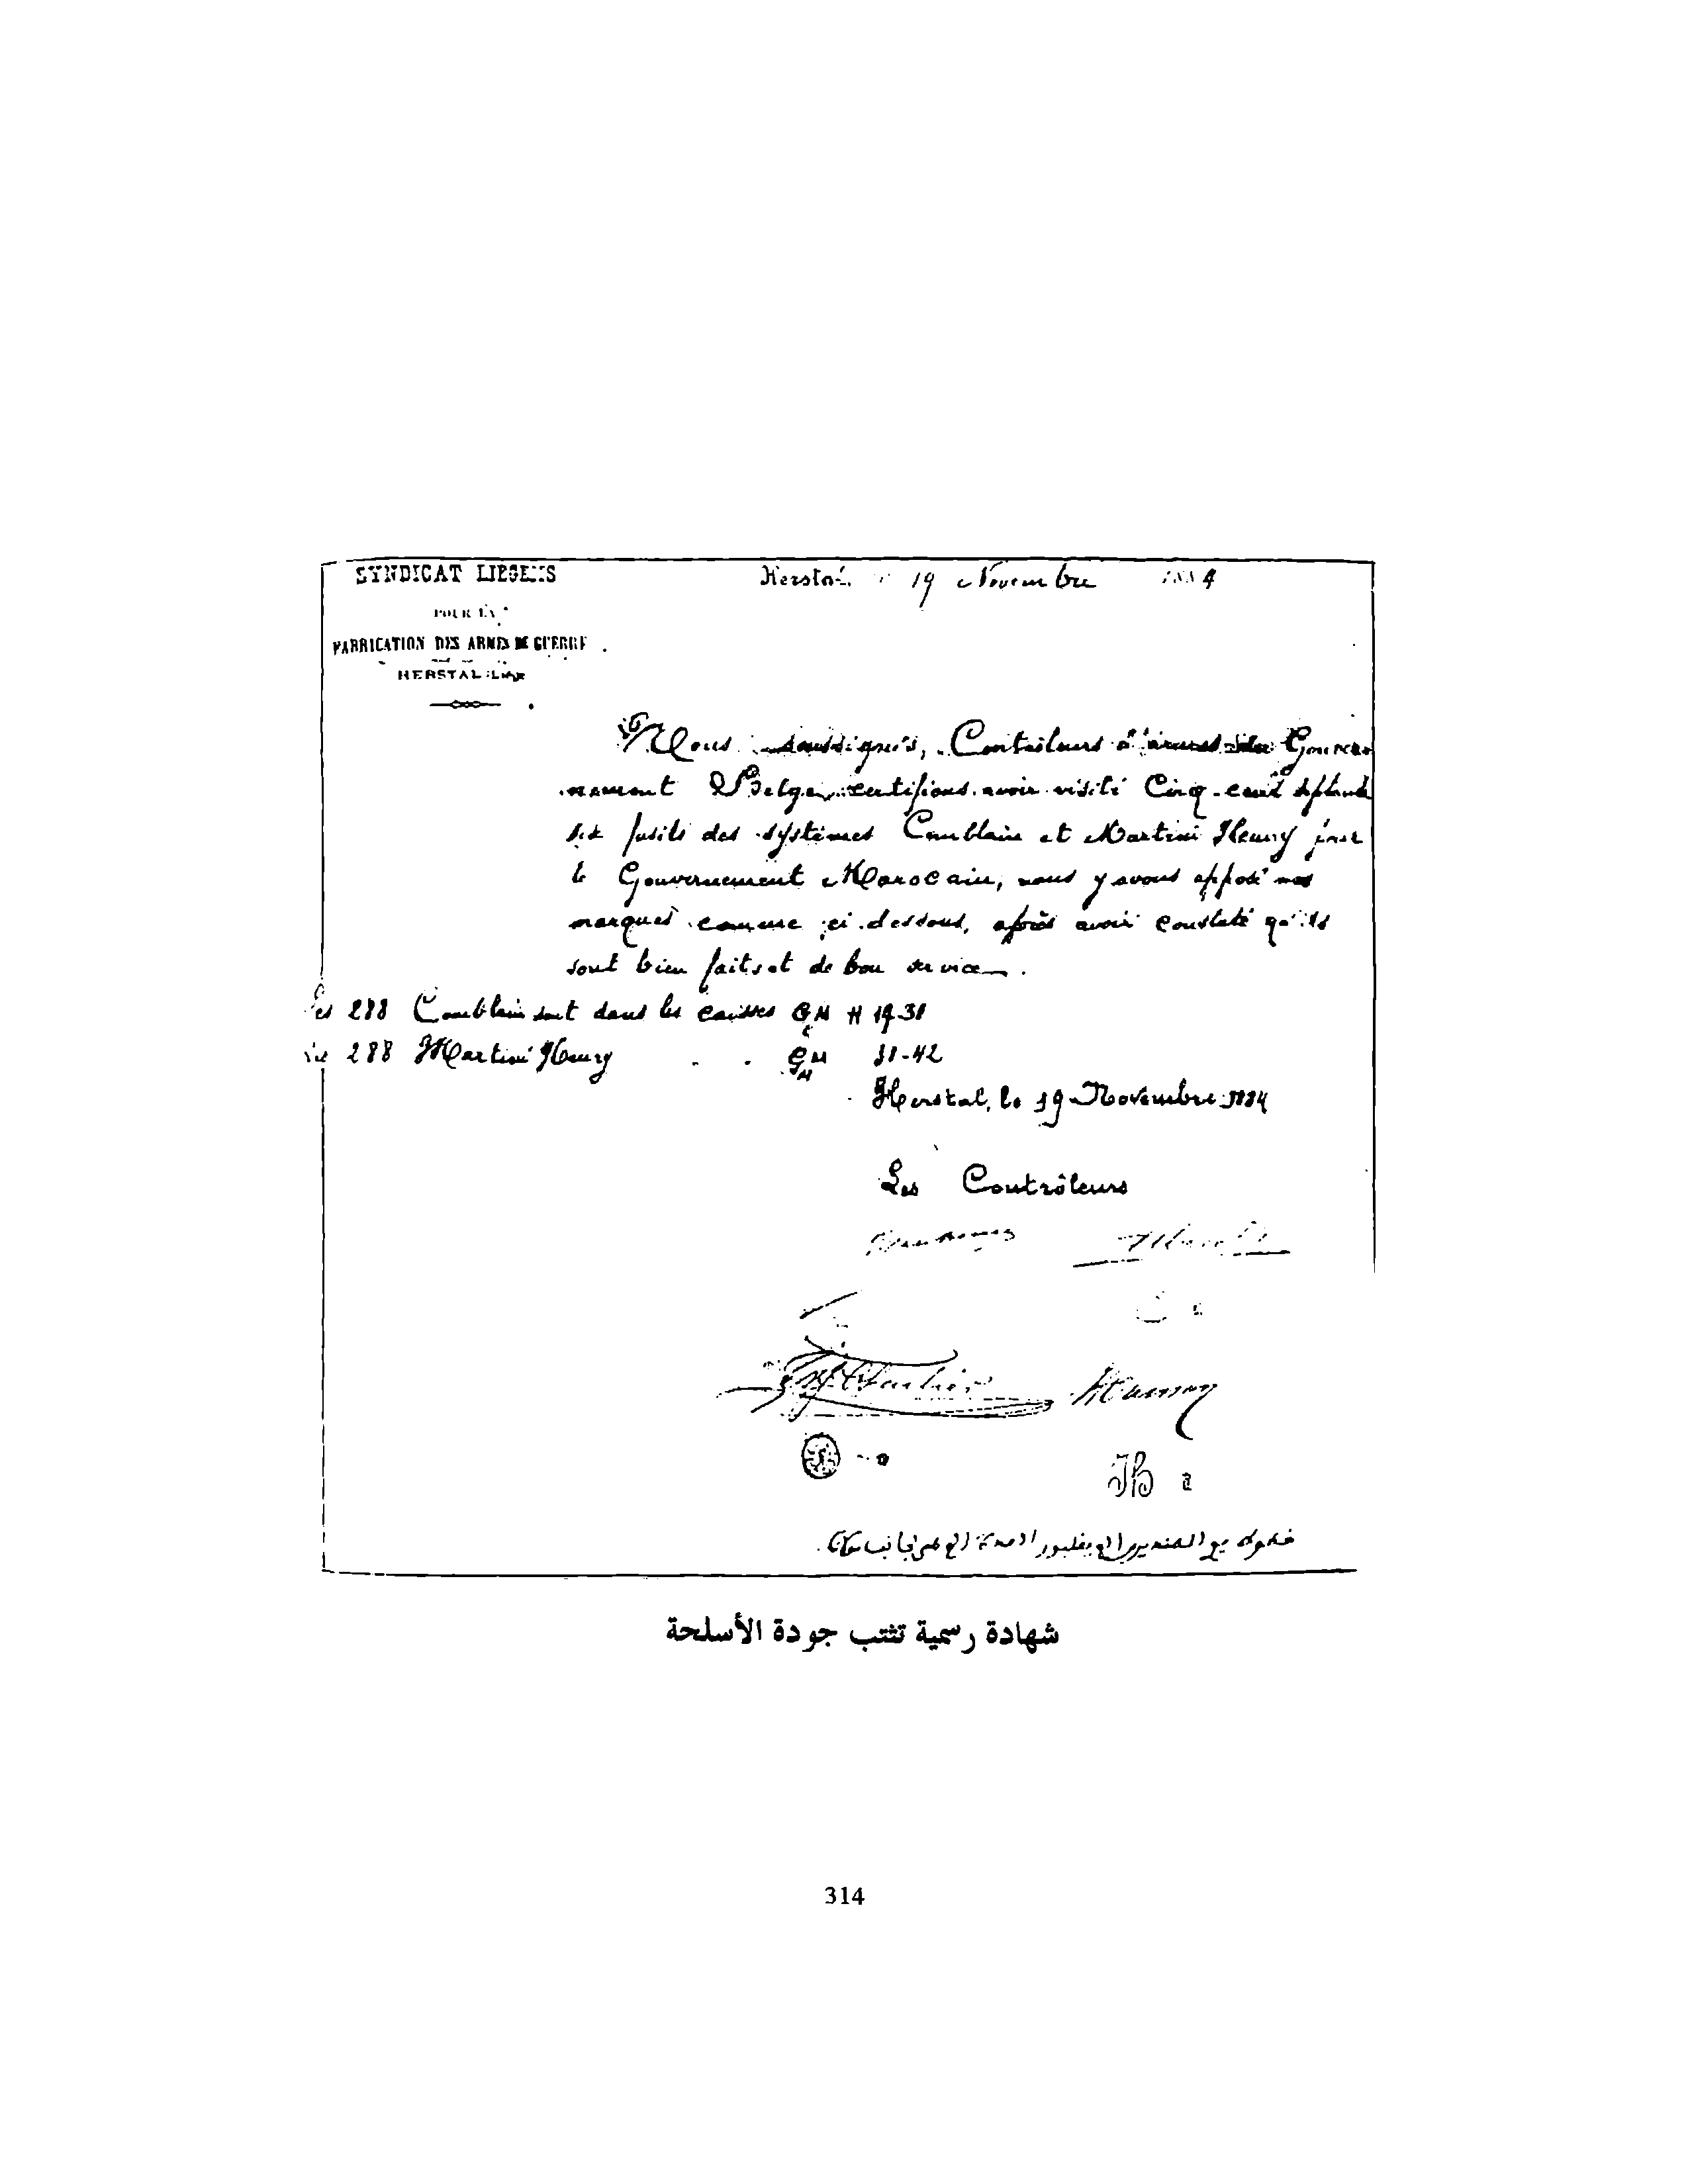 SYNDICAT LIÉGEOIS
Herstal, 19 Novembre 1884
POUR LA
FABRICATION DES ARMES DE GUERRE
HERSTAL
Nous soussignés, Contrôleurs d'armes du Gouver
nement Belge, certifions avoir visité Cinq-cent septante
six fusils des systèmes Comblain et Martini Henry pour
le Gouvernement Marocain, nous y avons apposé nos
marques comme ci dessous, après avoir constaté qu'ils
sont bien faits et de bon service.
Les 288 Comblain sont dans les caisses GM H 19-30
288 Martini Henry GM 31-42
Herstal, le 19 Novembre 1884
Les Contrôleurs
شهادة رسمية تثتب جودة الأسلحة
314